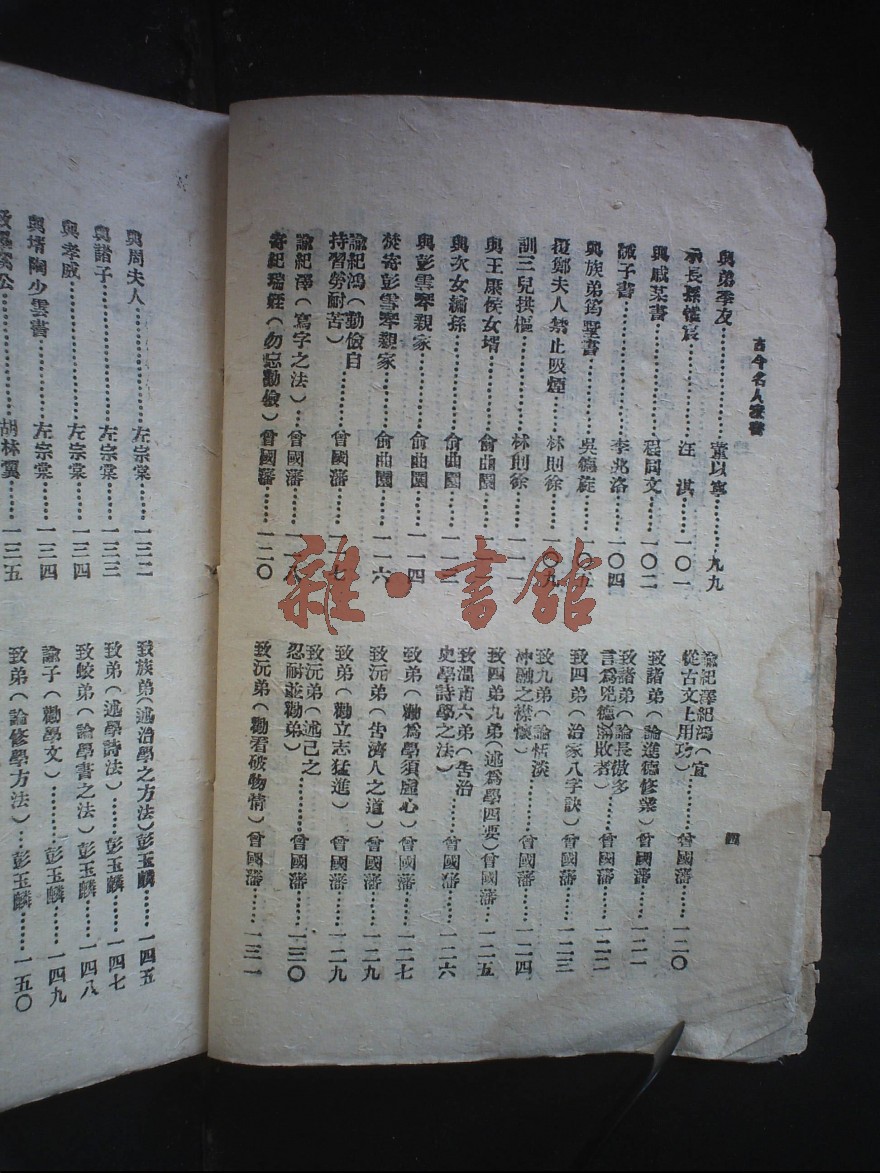 古今名人家書
與弟季友⋯⋯董以寧⋯⋯九九
示長孫⋯⋯汪淇⋯⋯一〇一
與戚某書⋯⋯程同文⋯⋯一〇二
誡子書⋯⋯李兆洛⋯⋯一〇四
與族弟筠墅書⋯⋯吳德旋⋯⋯一〇五
復鄭夫人禁止吸煙⋯⋯林則徐⋯⋯一〇九
訓三兒拱樞⋯⋯林則徐⋯⋯一一一
與王康侯女壻⋯⋯俞曲園⋯⋯一一二
與次女繡孫⋯⋯俞曲園⋯⋯一一三
與彭雪琴親家⋯⋯俞曲園⋯⋯一一四
焚寄彭雪琴親家⋯⋯俞曲園⋯⋯一一六
諭紀鴻(勤儉自
持習勞耐苦)⋯⋯曾國藩⋯⋯一一七
諭紀澤(寫字之法)⋯⋯曾國藩⋯⋯一一八
寄紀瑞姪(勿忘勤儉)曾國藩⋯⋯一二〇
諭紀澤紀鴻(宜
從古文上用功)⋯⋯曾國藩⋯⋯一二〇
致諸弟(論進德修業)曾國藩⋯⋯一二一
致諸弟(論長傲多
言爲兇德致敗者)⋯⋯曾國藩⋯⋯一二二
致四弟(治家八字訣)曾國藩⋯⋯一二三
致九弟(論恬淡
冲融之襟懷)⋯⋯曾國藩⋯⋯一二四
致四弟九弟(述爲學四要)曾國藩⋯⋯一二五
致溫甫六弟(告治
史學詩學之法)⋯⋯曾國藩⋯⋯一二六
致弟(勸爲學須虛心)曾國藩⋯⋯一二七
致沅弟(告濟人之道)曾國藩⋯⋯一二九
致弟(勸立志猛進)曾國藩⋯⋯一二九
致沅弟(述己之
忍耐並勸弟)⋯⋯曾國藩⋯⋯一三〇
致沅弟(勸看破物情)曾國藩⋯⋯一三一
四
與周夫人⋯⋯左宗棠⋯⋯一三二
與諸子⋯⋯左宗棠⋯⋯一三三
與孝威⋯⋯左宗棠⋯⋯一三四
與壻陶少雲書⋯⋯左宗棠⋯⋯一三四
公⋯⋯胡林翼⋯⋯一三五
致族弟(述治學之方法)彭玉麟⋯⋯一四五
致弟(述學詩法)⋯⋯彭玉麟⋯⋯一四七
致蛟弟(論學書之法)彭玉麟⋯⋯一四八
諭子(勸學文)⋯⋯彭玉麟⋯⋯一四九
致弟(論修學方法)⋯⋯彭玉麟⋯⋯一五〇
雜·書館